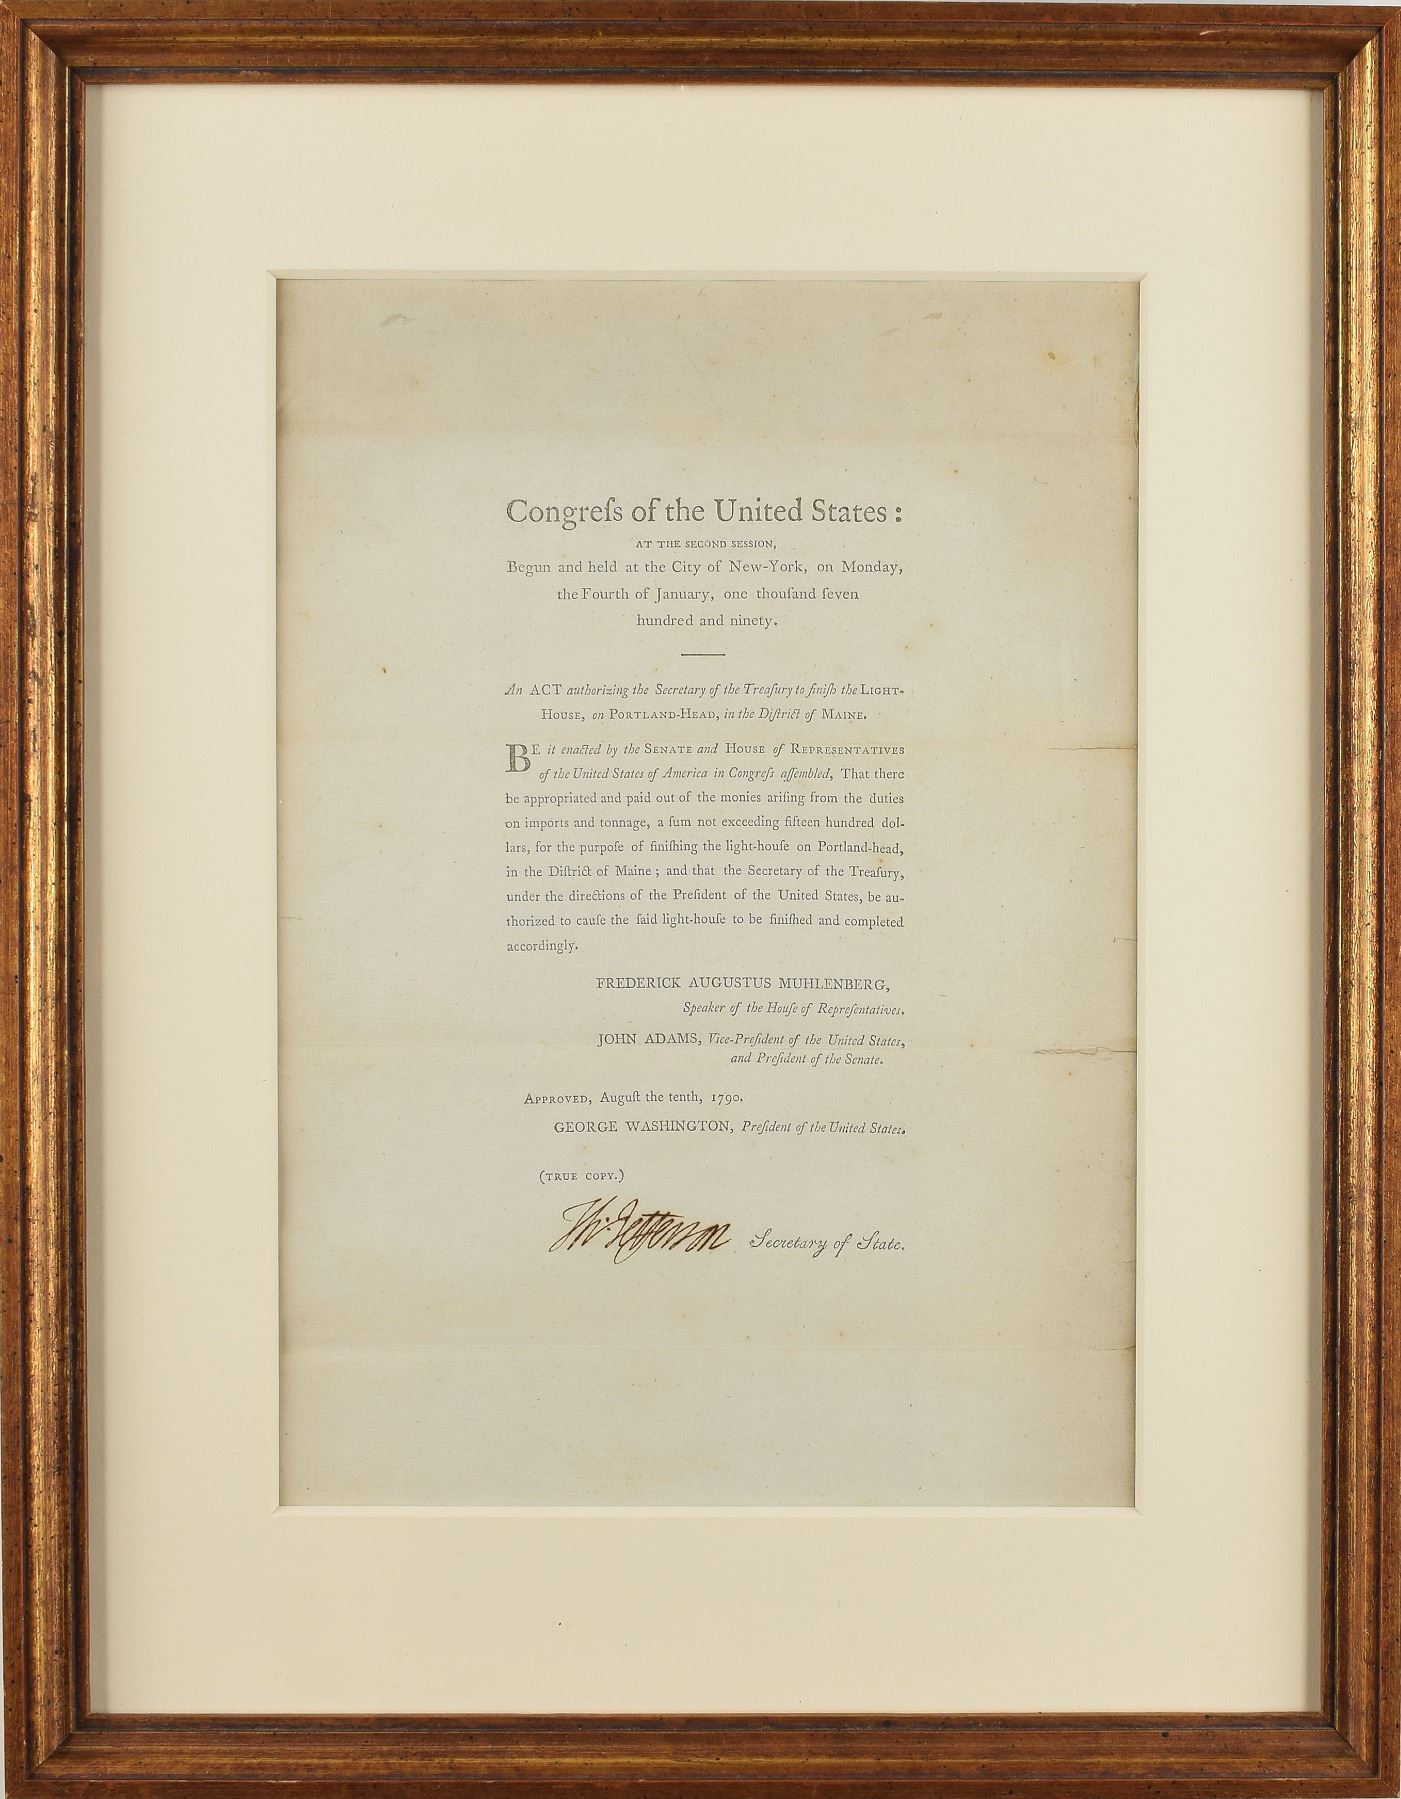 Congreſs of the United States:
AT THE SECOND SESSION,
Begun and held at the City of New-York, on Monday,
the Fourth of January, one thouſand ſeven
hundred and ninety.
An ACT authorizing the Secretary of the Treaſury to finiſh the LIGHT-
HOUSE, on PORTLAND-HEAD, in the Diſtrict of MAINE.
BE it enacted by the SENATE and HOUSE of REPRESENTATIVES
of the United States of America in Congreſs aſſembled, That there
be appropriated and paid out of the monies ariſing from the duties
on imports and tonnage, a ſum not exceeding fifteen hundred dol-
lars, for the purpoſe of finiſhing the light-houſe on Portland-head,
in the Diſtrict of Maine; and that the Secretary of the Treaſury,
under the directions of the Preſident of the United States, be au-
thorized to cauſe the ſaid light-houſe to be finiſhed and completed
accordingly.
FREDERICK AUGUSTUS MUHLENBERG,
Speaker of the Houſe of Repreſentatives.
JOHN ADAMS, Vice-Preſident of the United States,
and Preſident of the Senate.
APPROVED, Auguſt the tenth, 1790.
GEORGE WASHINGTON, Preſident of the United States.
(TRUE COPY.)
Th: Jefferson Secretary of State.